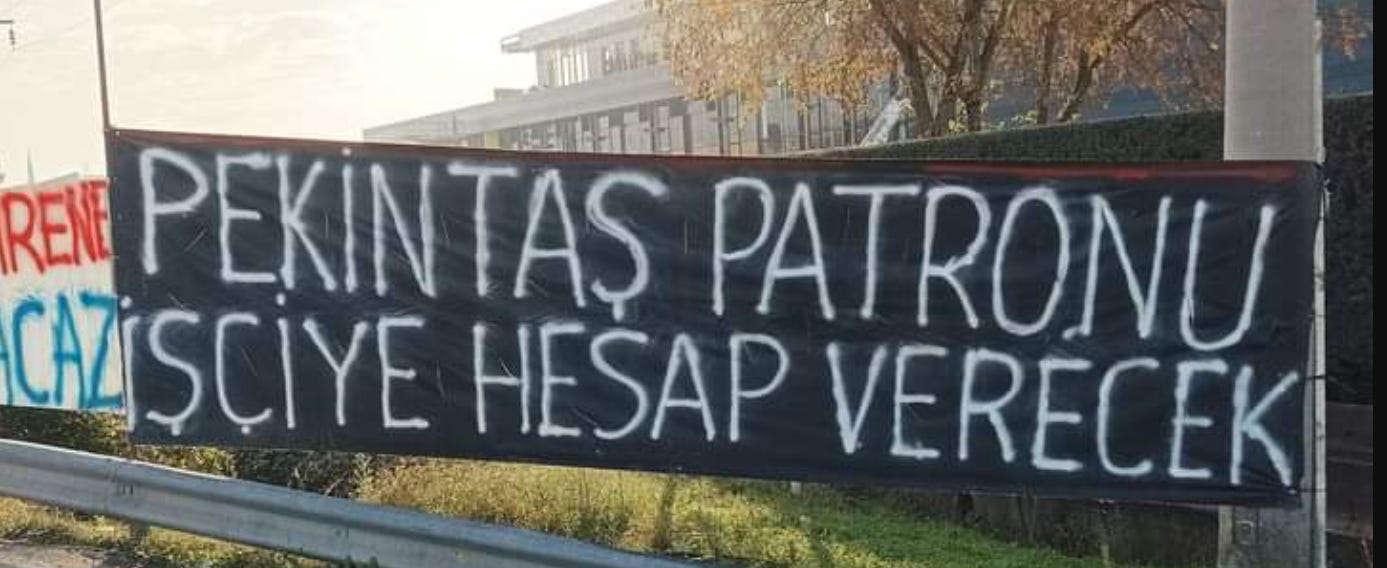 PEKİNTAŞ PATRONU
İŞÇİYE HESAP VERECEK